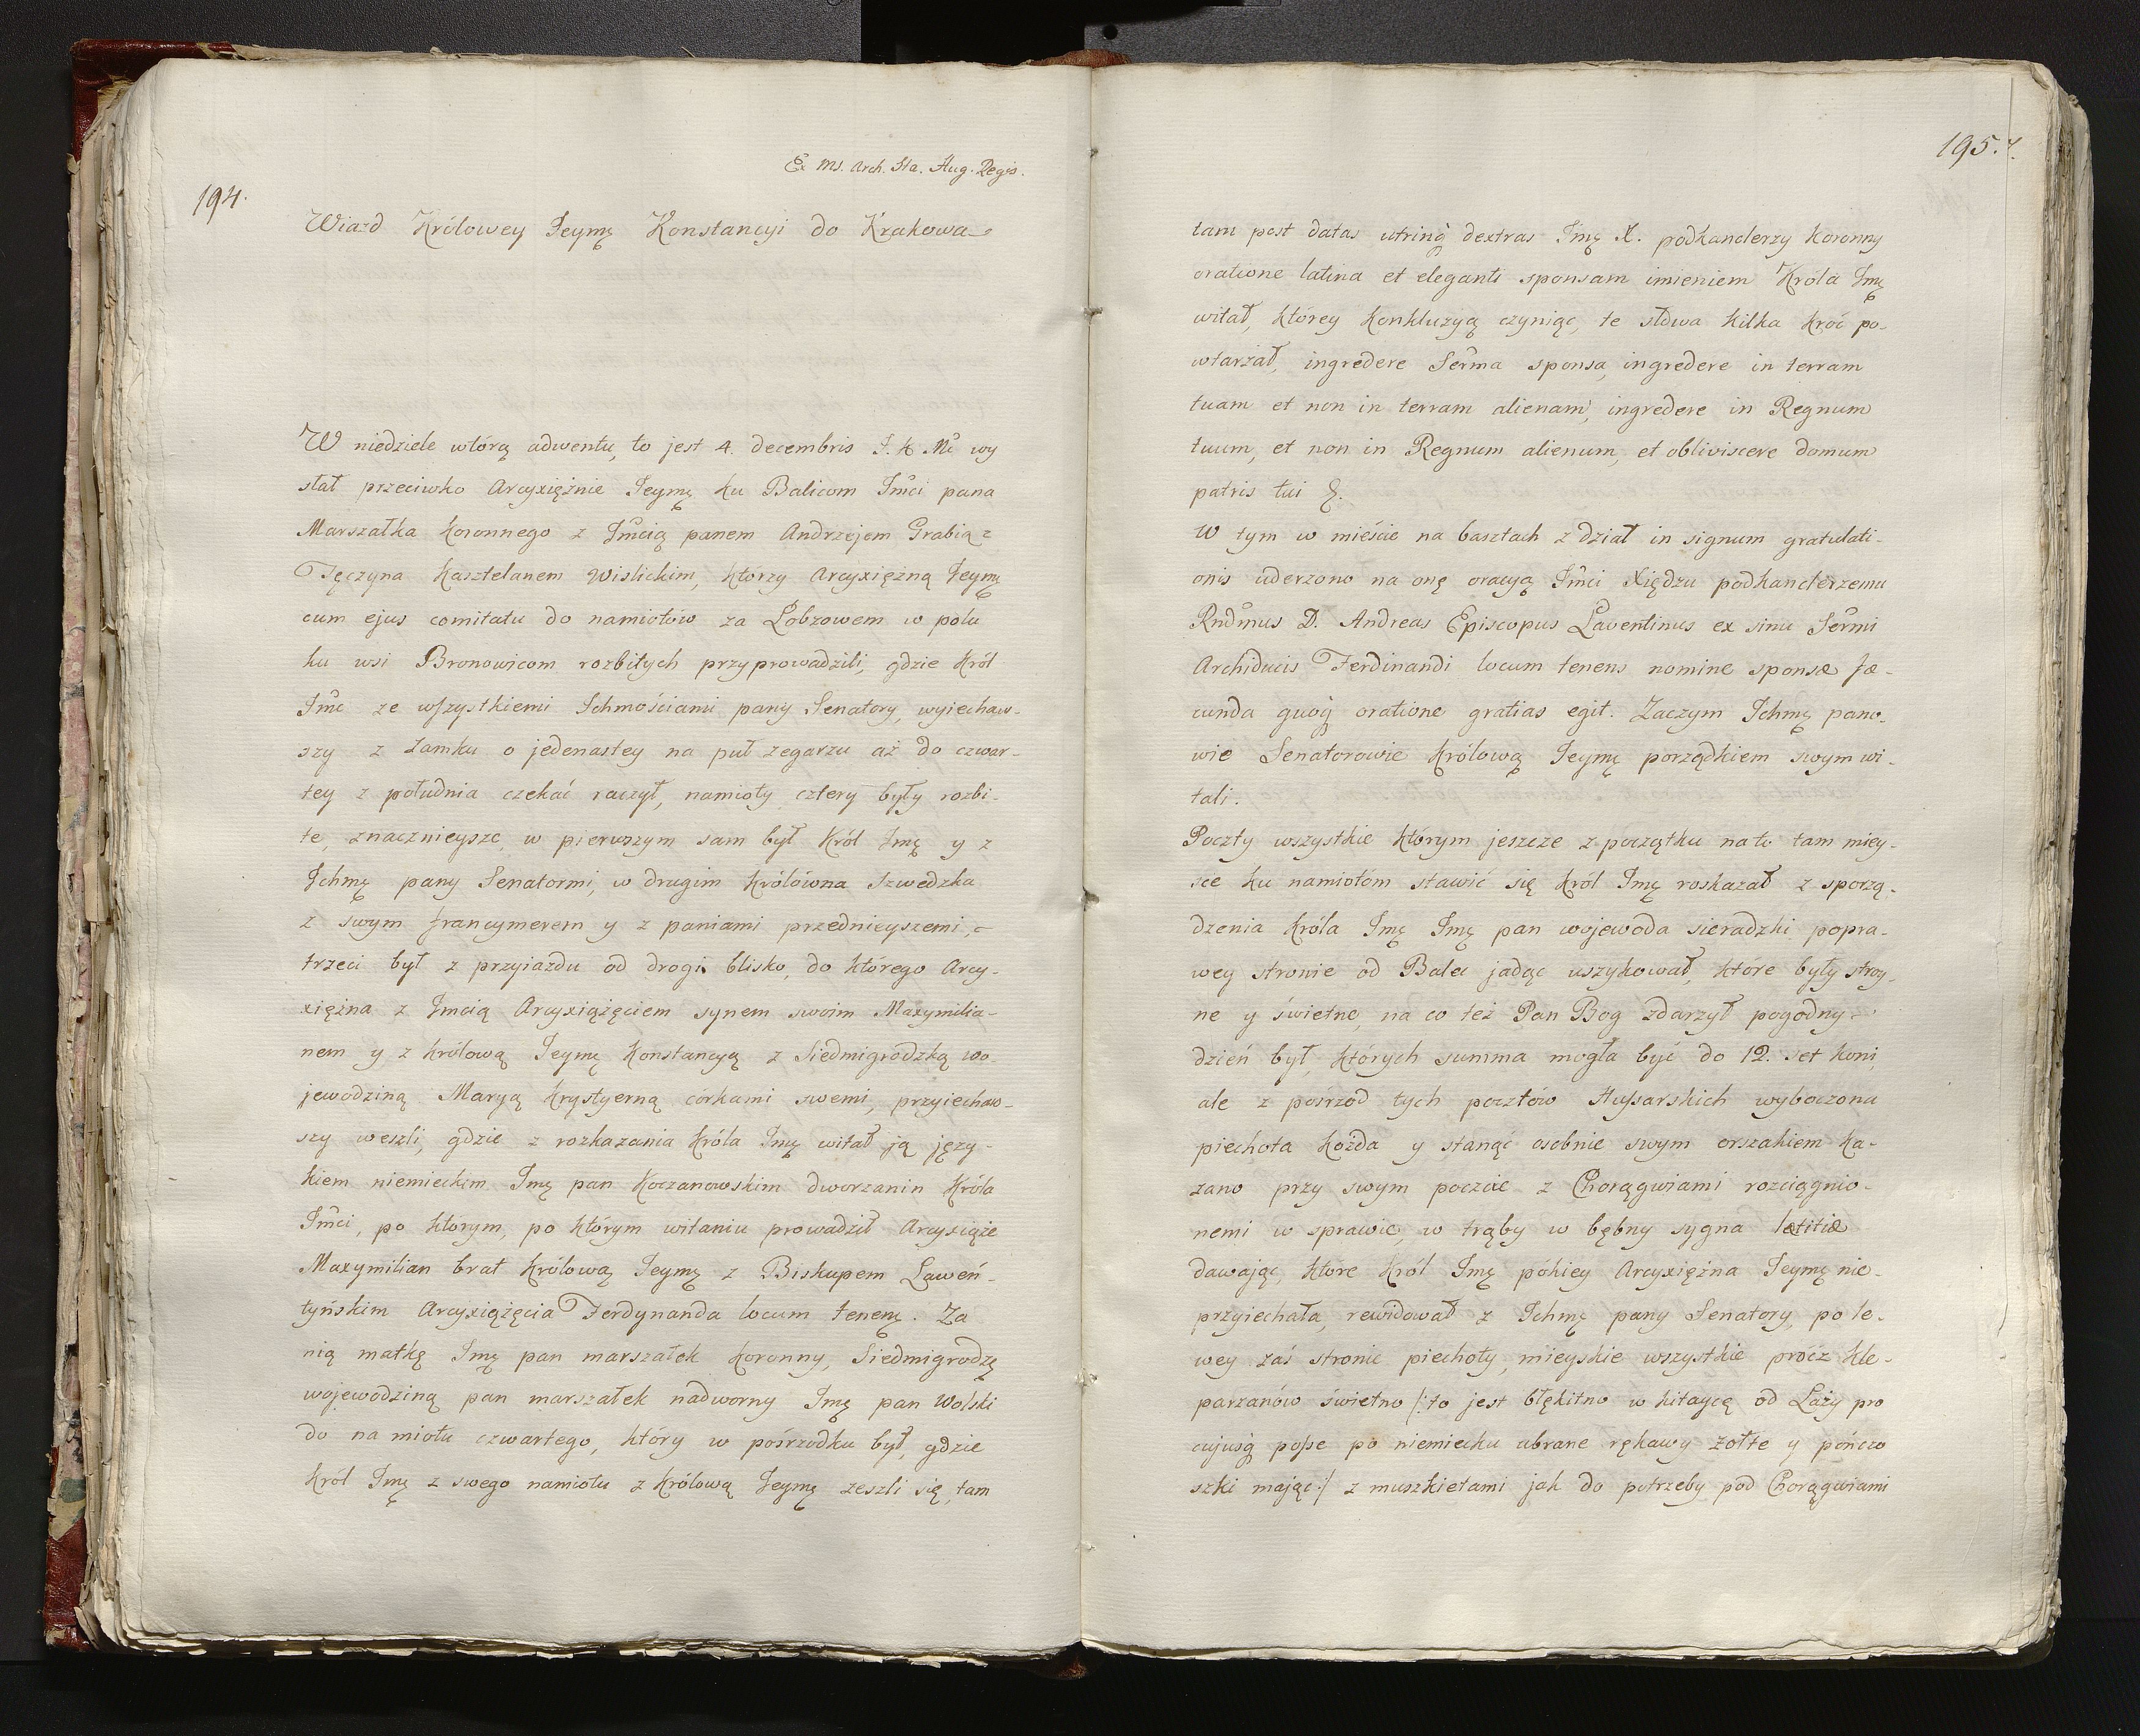 Ex Ms. Arch. Sta. Aug. Regis.
194.
Wiazd Królowey Jeymę Konstancyi do Krakowa
W niedziele wtórą adwentu, to jest 4. decembris J. K. Mć wy
słał przeciwko Arcyxiężnie Jeymę ku Balicom Jmci pana
Marszałka koronnego z Jmcią panem Andrzejem Grabią z
Tęczyna Kasztelanem Wislickim, którzy Arcyxiężną Jeymę
cum ejus comitatu do namiotów za Łobzowem w polu
ku wsi Bronowicom rozbitych przyprowadzili, gdzie Król
Jmć ze wszystkiemi Ichmościami pany Senatory, wyiechaw-
szy z zamku o jedenastey na puł zegarzu aż do czwar-
tey z południa czekać raczył, namioty cztery były rozbi-
te, znacznieysze, w pierwszym sam był Król Jmę y z
Ichmę pany Senatormi, w drugim Królówna Szwedzka
z swym francymerem y z paniami przednieyszemi,
trzeci był z przyiazdu od drogi blisko, do którego Arcy-
xiężna z Jmcią Arcyxiążęciem synem swoim Maxymilia-
nem y z królową Jeymę Konstancyą z Siedmigrodzką wo-
jewodziną Maryą Krystyerną córkami swemi, przyiechaw-
szy weszli, gdzie z rozkazania Króla Jmę witał ją języ-
kiem niemieckim Jmę pan Koczanowskim dworzanin Króla
Jmci, po którym, po którym witaniu prowadził Arcyxiąże
Maxymilian brat Królową Jeymę z Biskupem Laweń-
tyńskim Arcyxiążęcia Ferdynanda locum tenenę. Za
nią matkę Jmę pan marszałek koronny, Siedmigrodzę
wojewodziną pan marszałek nadworny Jmę pan Wolski
do na miotu czwartego, który w pośrzodku był, gdzie
Król Jmę z swego namiotu z Królową Jeymę zeszli się, tam
195.
tam post datas utrinq̀ dextras Jmę X. podkanclerzy Koronny
oratione latina et eleganti sponsam imieniem Króla Jmę
witał, którey konkluzyą czyniąc, te słowa kilka kroć po-
wtarzał, ingredere Serma sponsa, ingredere in terram
tuam et non in terram alienam, ingredere in Regnum
tuum, et non in Regnum alienum, et obliviscere domum
patris tui &.
W tym w mieście na basztach z dział in signum gratulati-
onis uderzono na onę oracyą Jmci Xiędzu podkanclerzemu
Rndmus D. Andreas Episcopus Laventinus ex sinu Sermi
Archiducis Ferdinandi locum tenens nomine sponsæ fæ-
cunda quoq̀ oratione gratias egit. Zaczym Ichmę pano-
wie Senatorowie Królową Jeymę porządkiem swym wi-
tali.
Poczty wszystkie którym jeszcze z początku na to tam miey-
sce ku namiotóm stawić się Król Jmę roskazał z sporzą-
dzenia Króla Jmę Jmę pan wojewoda sieradzki popra-
wey stronie od Balic jadąc uszykował, które były stroy-
ne y świetne, na co też Pan Bog zdarzył pogodny
dzień był, których summa mogła być do 12. set koni,
ale z pośrzod tych pocztów Hussarskich wyboczona
piechota każda y stanąć osobnie swym orszakiem ka-
zano przy swym poczcie z Chorągwiami rozciągnio-
nemi w sprawie, w trąby w bębny sygna lætitiæ
dawając, które Król Jmę pókiey Arcyxiężna Jeymę nie-
przyiechała, rewidował z Ichmę pany Senatory, po le-
wey zaś stronie piechoty, mieyskie wszystkie prócz Kle-
parzanów świetno /: to jest błękitno w kitaycę od Laży pro
cujusq̀ posse po niemiecku ubrane rękawy żołte y pończo
szki mając :/ z muszkietami jak do potrzeby pod Chorągwiami